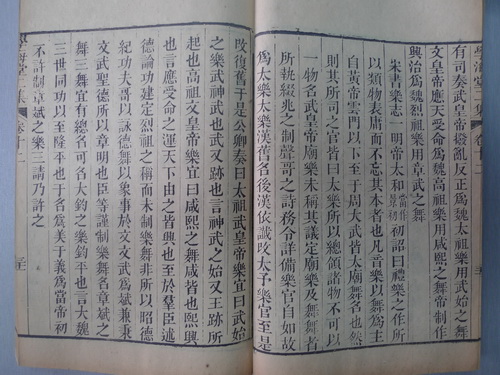 有司奏武皇帝撥亂反正爲魏太祖樂用武始之舞
文皇帝應天受命爲魏高祖樂用咸熙之舞帝制作
興治爲魏烈祖樂用章武之舞
朱書樂志一明帝太和當作景初初詔曰禮樂之作所
以類物表庸而不忘其本者也凡音樂以舞爲主
自黃帝雲門以下至于周大武皆太廟舞名也然
則其所司之官皆曰太樂所以總領諸物不可以
一物名武皇帝廟樂未稱其議定廟樂及舞舞者
所執綴兆之制聲哥之詩務令詳備樂官自如故
爲太樂太樂漢舊名後漢依讖攺太予樂官至是
攺復舊于是公卿奏曰太祖武皇帝樂宜曰武始
之樂武神武也武又跡也言神武之始又王跡所
起也高祖文皇帝樂宜曰咸熙之舞咸皆也熙興
也言應受命之運天下由之皆興也至於羣臣述
德論功建定烈祖之稱而未制樂舞非所以昭德
紀功夫哥以詠德舞以象事於文文武爲斌兼秉
文武聖德所以章明也臣等謹制樂舞名章斌之
舞三舞宜有總名可名大鈞之樂鈞平也言大魏
三世同功以至隆平也于名爲美于義爲當帝初
不許制章斌之樂三請乃許之